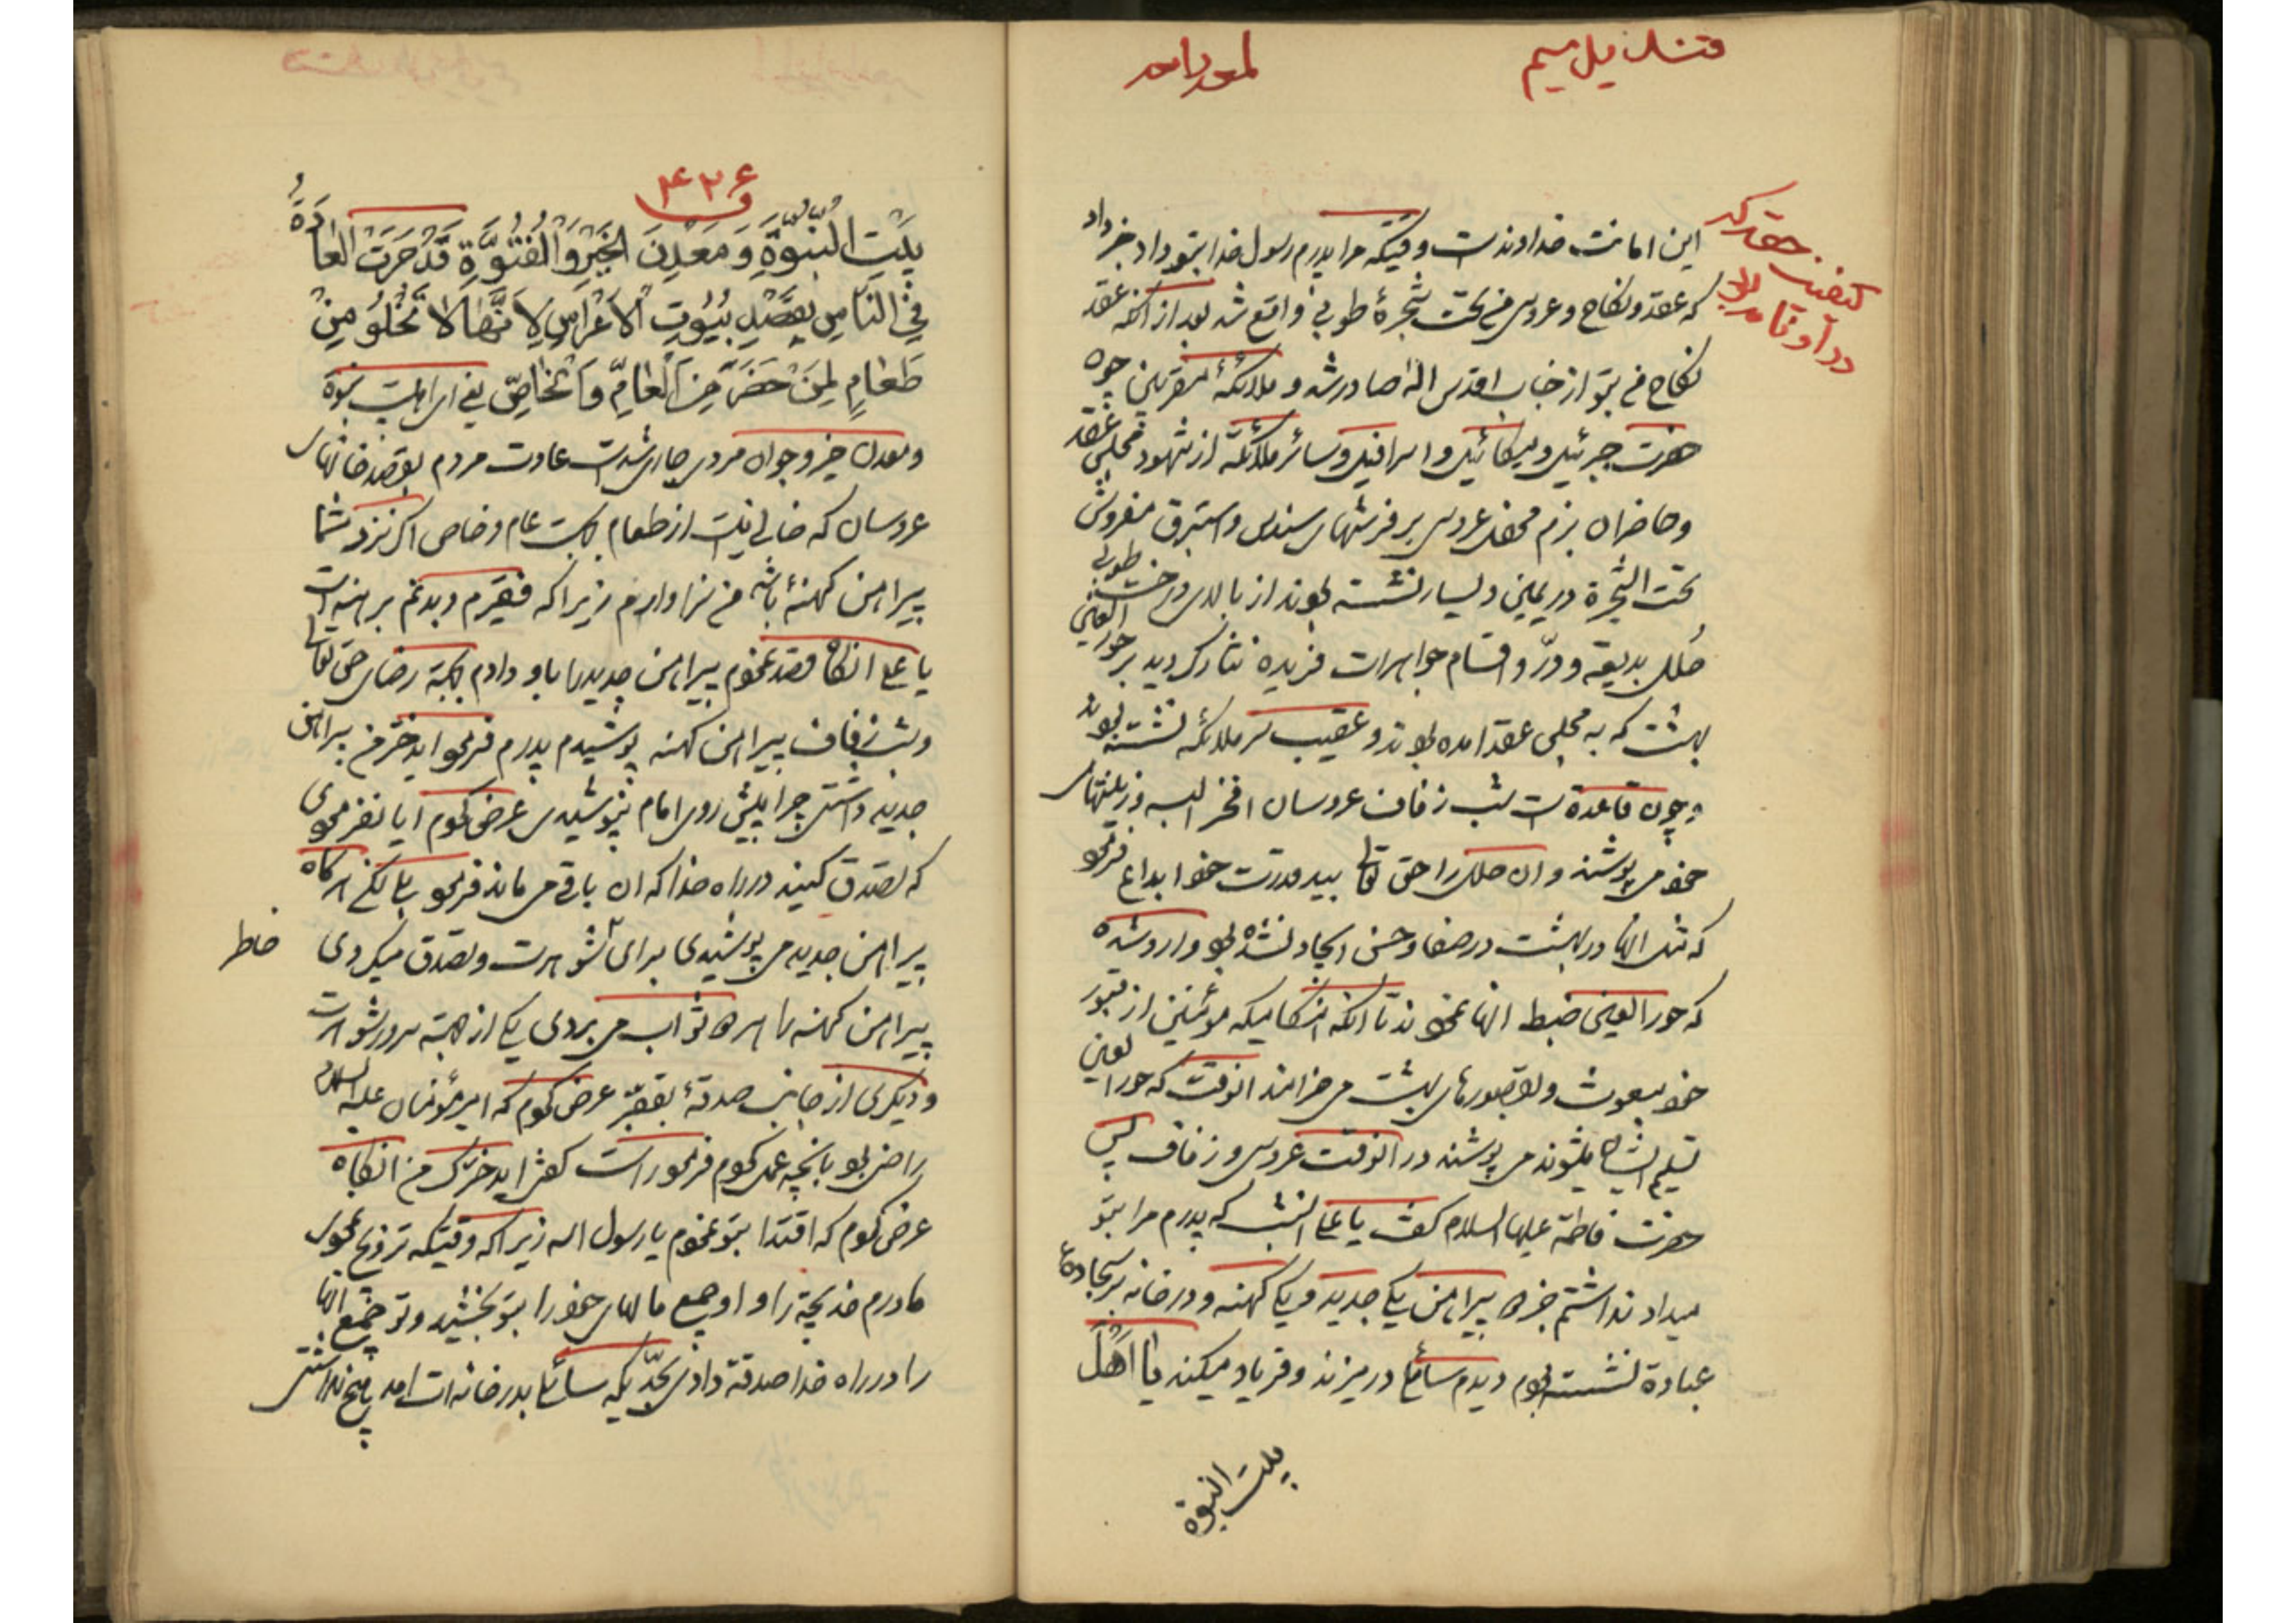 این امانت خداوندست وقتیکه مرا پدرم رسول خدا بتو داد خبر داد
که عقد و نکاح و عروسی من تحت شجرهٔ طوبی واقع شد بعد از انکه عقد
نکاح من بتو از جناب اقدس اله صادر شد و ملائکهٔ مقربین چون
حضرت جبرئیل و میکائیل و اسرافیل و سائر ملائکه از شهود مجلس عقد
و حاضران بزم محفل عروسی بر فرشهای سندس و استبرق مفروش
تحت الشجرة در یمین و یسار نشسته بودند از بالای درخت طوبی
حلل بدیعه و درّ و اقسام جواهرات فریده نثار کردید بر حور العین
بهشت که به مجلس عقد امده بودند و عقیب سر ملائکه نشسته بودند
و چون قاعدة است شب زفاف عروسان افخر البسه و زینتهای
خود می پوشند و ان حلل را حق تعالی بید قدرت خود ابداع فرمود
که مثل انها در بهشت در صفا و حسن ایجاد نشده بود وارد شده
که حور العین ضبط انها نمودند تا انکه هنکامیکه مؤمنین از قبور
خود مبعوث و بقصورهای بهشت می خرامند انوقت که حور العین
تسلیم ایشان میشوند می پوشند در انوقت عروسی و زفاف پس
حضرت فاطمة علیها السلام کفت یا علی انشب که پدرم مرا بتو
میداد نداشتم جز دو پیراهن یکی جدید و یکی کهنه و در خانه بر سجادهٔ
عبادة نشسته بودم دیدم سائلی در میزند و فریاد میکند یا اَهْلَ
بیت النبوة
۴۲۶
بَیْتِ النُّبُوَّةِ وَ مَعْدِنَ الْخَیْرِ وَ الْفُتُوَّةِ قَدْ جَرَتْ الْعَادَةُ
فِی النَّاسِ بِقَصْدِ بُیُوتِ الْاَعْرَاسِ لِاَنَّهَا لَا تَخْلُو مِنْ
طَعَامٍ لِمَنْ حَضَرَ مِنَ الْعَامِّ وَ الْخَاصِّ یعنی ای اهل بیت نبوة
و معدن خیر و جوان مردی جاری شدست عادت مردم بقصد خانهای
عروسان که خالی نیست از طعام بجهت عام و خاص اکر نزد شما
پیراهن کهنهٔ باشد من سزاوارم زیرا که فقیرم و بدنم برهنه است
یا علی انکاه قصد نمودم پیراهن جدید را باو دادم بجهة رضای حق تعالی
و شب زفاف پیراهن کهنه پوشیدم پدرم فرمود اید ختر من پیراهن
جدید داشتی چرا پیش روی امام نپوشیدی عرض کردم ایا نفرمودی
که تصدق کنید در راه خدا که ان باقی می ماند فرمود بلی لکن هرکاه
پیراهن جدید می پوشیدی برای شوهرت و تصدق میکردی
پیراهن کهنه را هر دو ثواب می بردی یکی از جهة سرور شوهرت
و دیکری از جانب صدقهٔ بفقیر عرض کردم که امیر مؤمنان علیه السلام
راضی بود بانچه عمل کردم فرمود راست کفتی اید ختر من انکاه
عرض کردم که اقتدا بتو نمودم یا رسول اله زیرا که وقتیکه تزویج نمودی
مادرم خدیجة را و او جمیع مالهای خود را بتو بخشید و تو جمیع انها
را در راه خدا صدقة دادی بحدّیکه سائلی بدر خانه ات امد چیز نداشتی